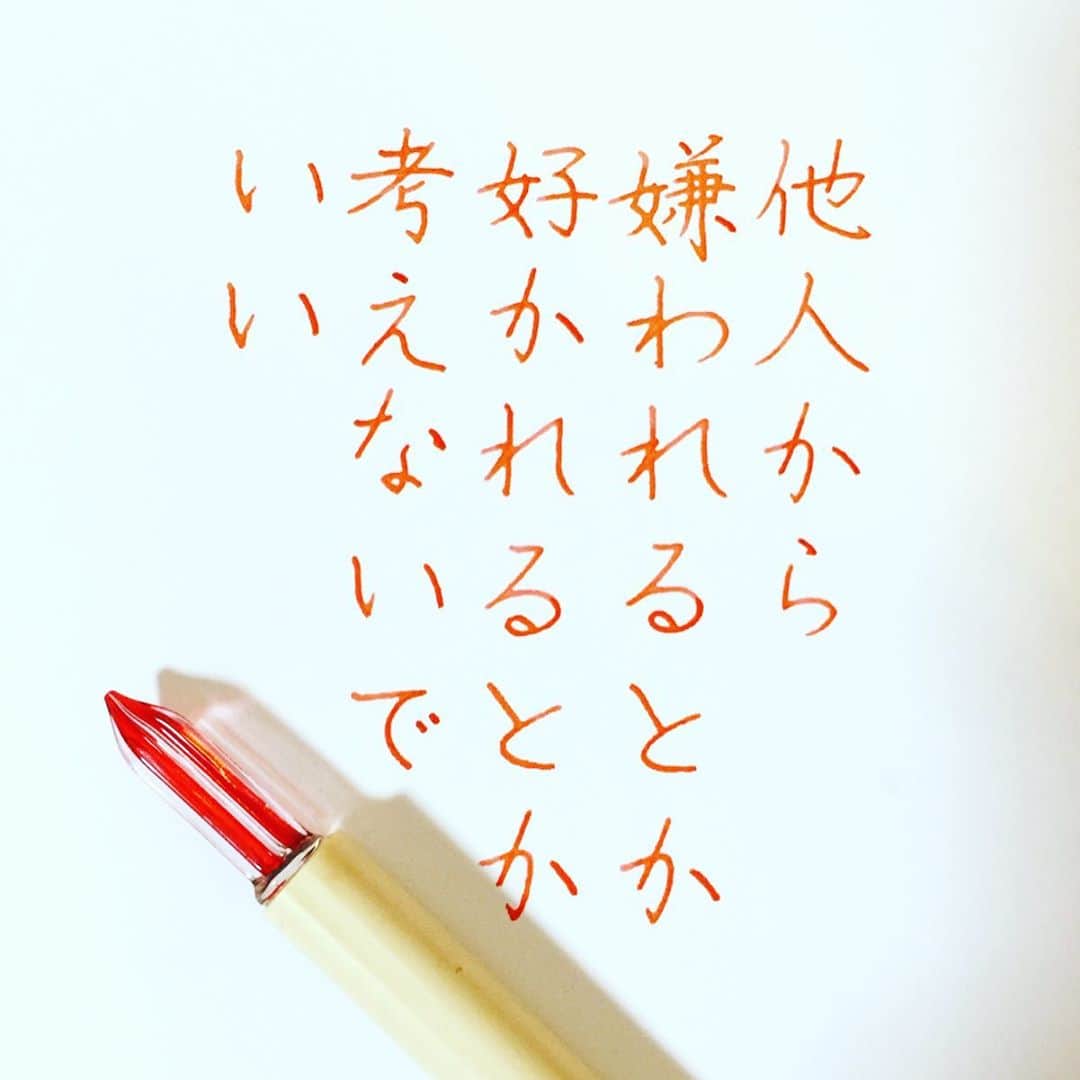 他人から
嫌われるとか
好かれるとか
考えないで
いい